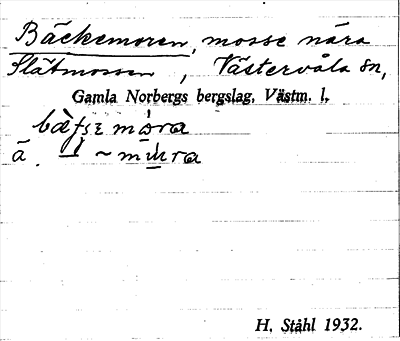 Bäckemoren, mosse nära
Slätmossen, Västervåla sn,
Gamla Norbergs bergslag, Västm. l.
H. Ståhl 1932.